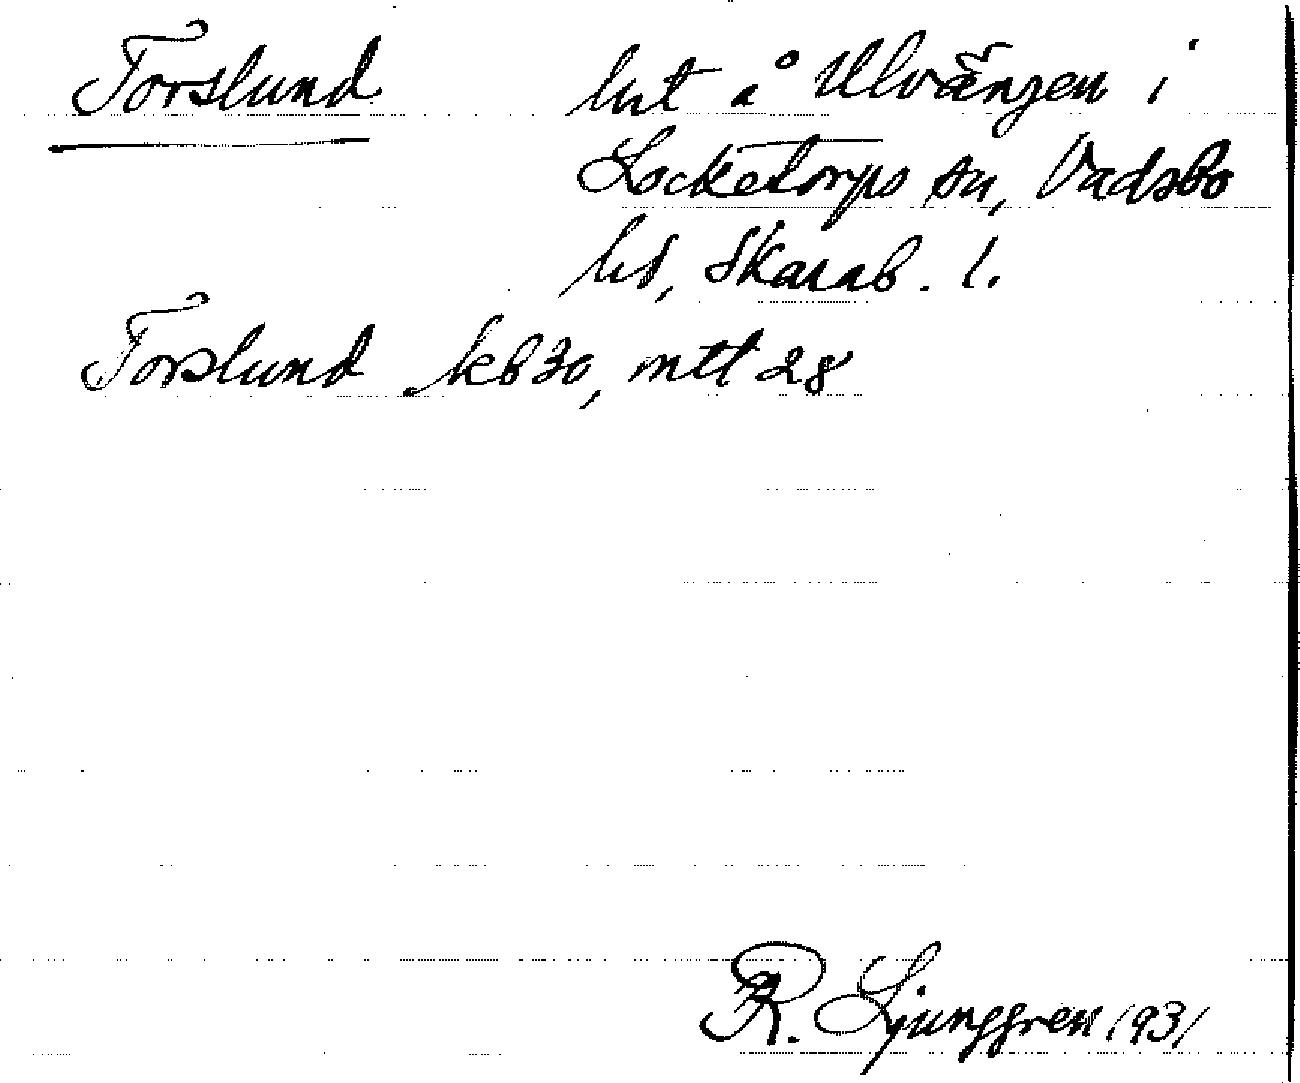 Torslund lht å Ulvängen i
Locketorps sn, Vadsbo
hd, Skarab. l.
Torslund kb 30, mtl 28
R. Ljunggren 1931